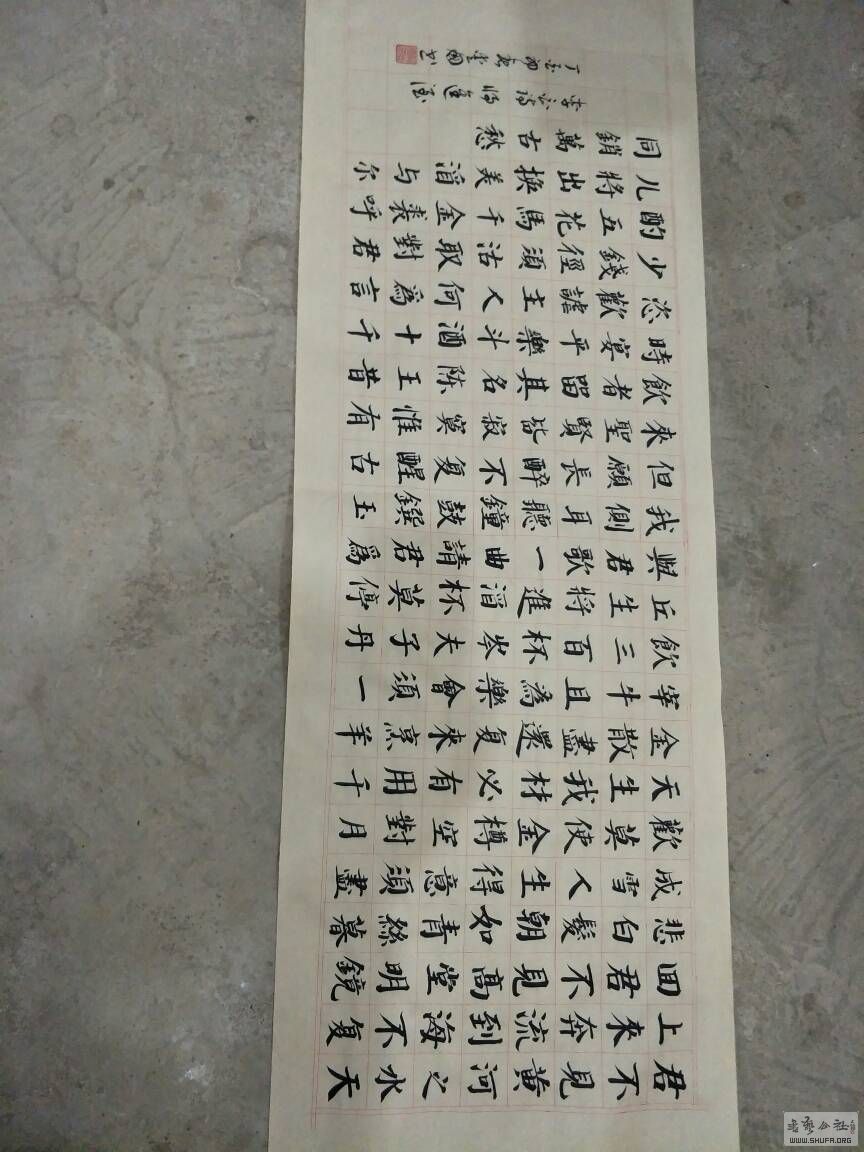 君不見黃河之水天
上來奔流到海不复
回君不見高堂明鏡
悲白髮朝如青絲暮
成雪人生得意須盡
歡莫使金樽空對月
天生我材必有用千
金散盡還复來烹羊
宰牛且為樂會須一
飲三百杯岑夫子丹
丘生將進滔杯莫停
與君歌一曲請君為
我側耳聽鐘鼓饌玉
但願長醉不复醒古
來聖賢皆寂寞惟有
飲者留其名陈王昔
時宴平樂斗酒十千
恣歡謔主人何為言
少錢徑須沽取對君
酌五花馬千金裘呼
儿將出換美滔与尔
同銷萬古愁
李白詩將進酒
丁酉初春
WWW.SHUFA.ORG